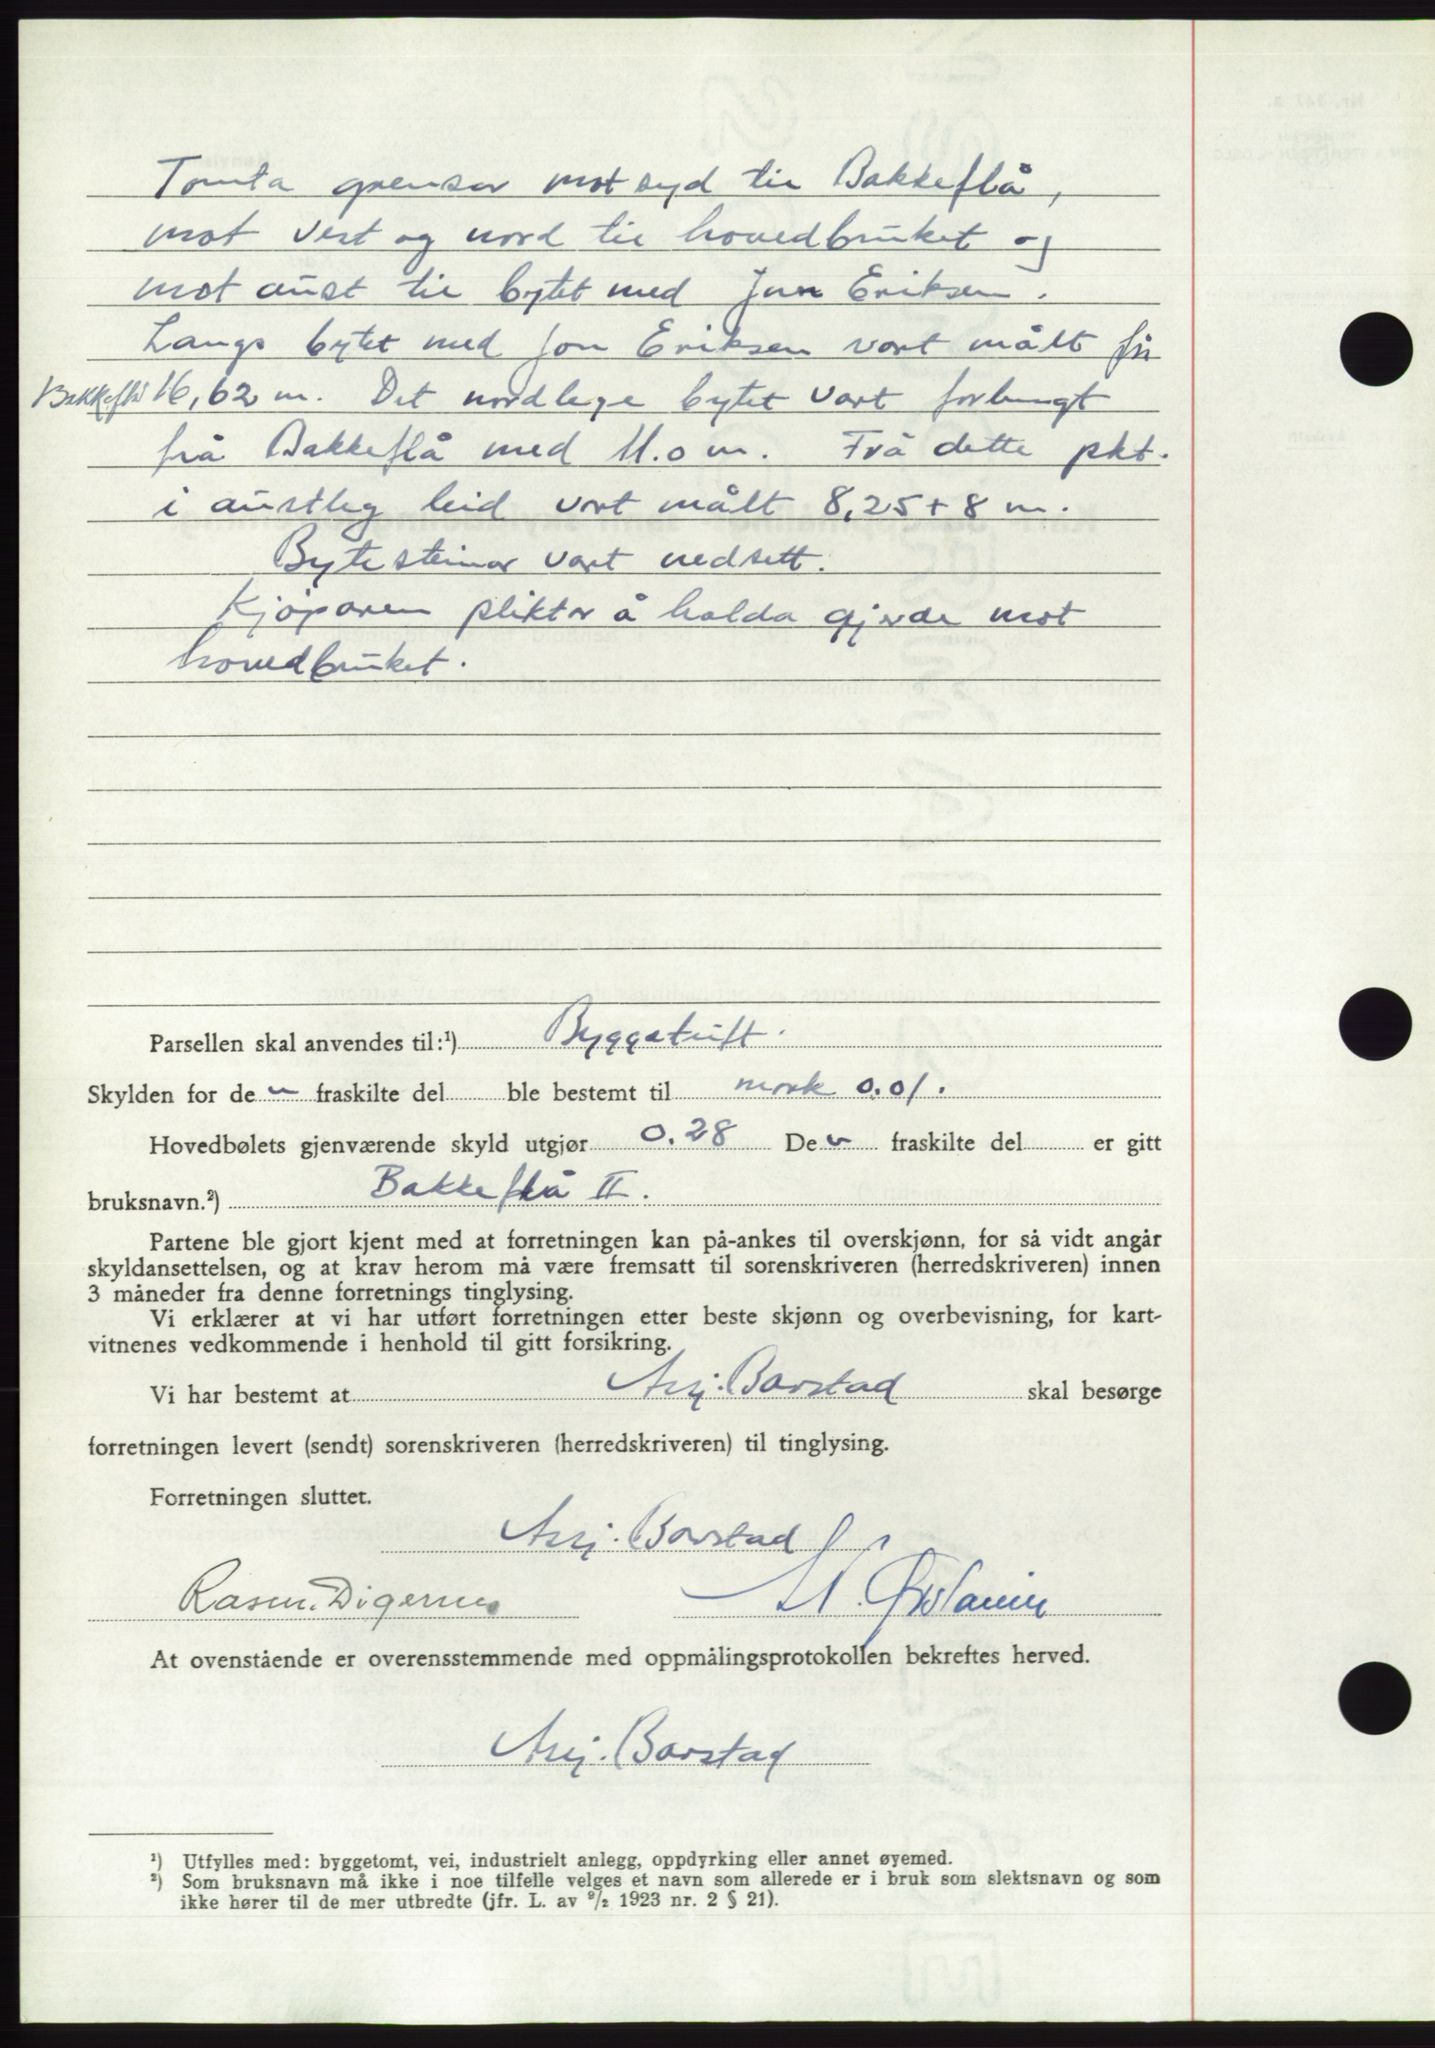 Tomta grenser mot syd til Bakkeflå,
mot vest og nord til hovedbruket og
mot aust til bytet med Jon Eriksen.
Langs bytet med Jon Eriksen vart målt frå
Bakkeflå 16,62 m. Det nordlege bytet vart forlengt
frå Bakkeflå med 11.0 m. Frå dette pkt.
i austleg leid vart målt 8,25 + 8 m.
Bytesteinar vart nedsett.
Kjøparen pliktar å halda gjerde mot
hovedbruket.
Parsellen skal anvendes til:¹) Byggetuft.
Skylden for de n fraskilte del ble bestemt til mark 0.01.
Hovedbølets gjenværende skyld utgjør 0.28 De n fraskilte del er gitt
bruksnavn.²) Bakkeflå II.
Partene ble gjort kjent med at forretningen kan på-ankes til overskjønn, for så vidt angår
skyldansettelsen, og at krav herom må være fremsatt til sorenskriveren (herredskriveren) innen
3 måneder fra denne forretnings tinglysing.
Vi erklærer at vi har utført forretningen etter beste skjønn og overbevisning, for kart-
vitnenes vedkommende i henhold til gitt forsikring.
Vi har bestemt at Asj. Barstad skal besørge
forretningen levert (sendt) sorenskriveren (herredskriveren) til tinglysing.
Forretningen sluttet.
Asj. Barstad
Rasm. Digernes
At ovenstående er overensstemmende med oppmålingsprotokollen bekreftes herved.
Asj. Barstad
¹) Utfylles med: byggetomt, vei, industrielt anlegg, oppdyrking eller annet øyemed.
²) Som bruksnavn må ikke i noe tilfelle velges et navn som allerede er i bruk som slektsnavn og som
ikke hører til de mer utbredte (jfr. L. av ⁹/₂ 1923 nr. 2 § 21).